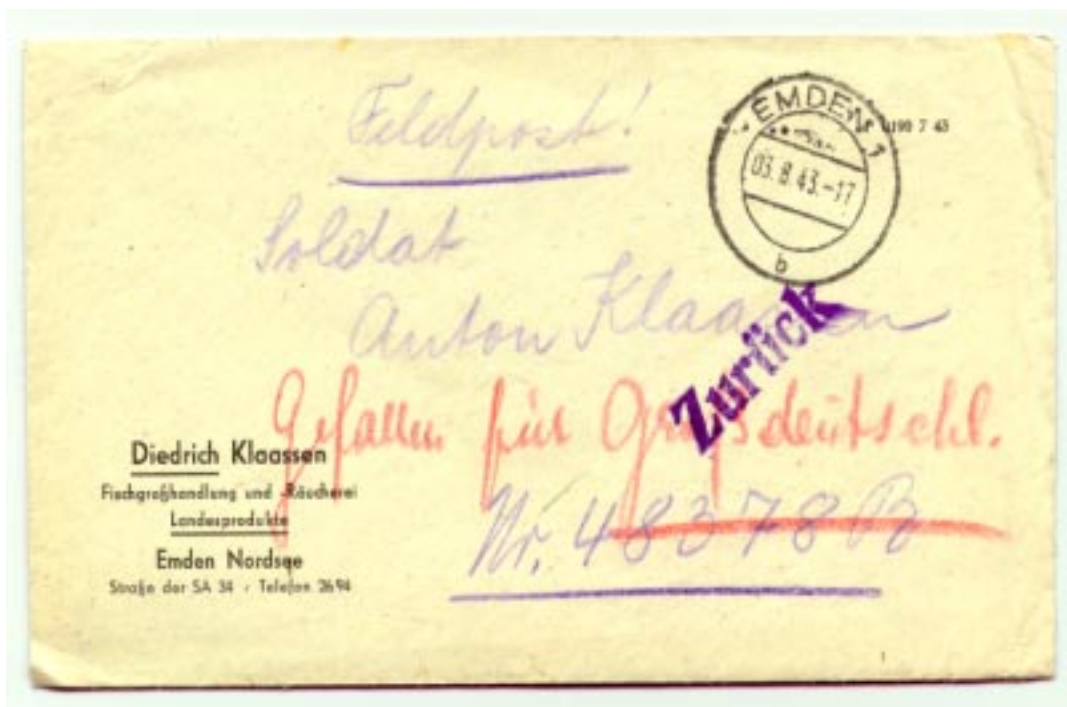 Feldpost!
EMDEN 1
03.8.43.-17
b
190 7 43
Soldat
Anton Klaassen
Zurück
Gefallen für Großdeutschl.
Nr. 48378 B
Diedrich Klaassen
Fischgroßhandlung und Räucherei
Landesprodukte
Emden Nordsee
Straße der SA 34 / Telefon 2694